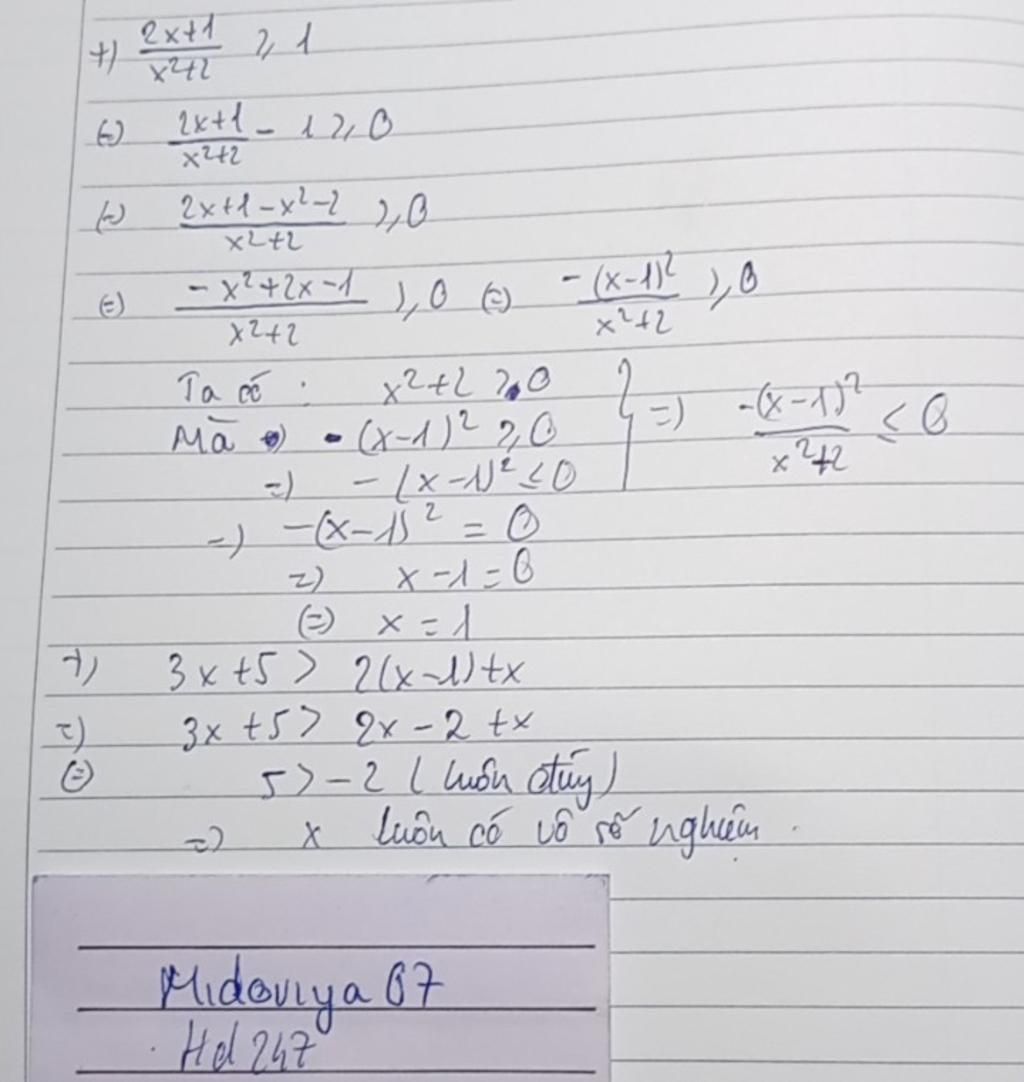 +) \frac{2x+1}{x²+2} ≥ 1
(=) \frac{2x+1}{x²+2} - 1 ≥ 0
(=) \frac{2x+1-x²-2}{x²+2} ≥ 0
(=) \frac{-x²+2x-1}{x²+2} ≥ 0 (=) \frac{-(x-1)²}{x²+2} ≥ 0
Ta có : x²+2 ≥ 0
Mà (x-1)² ≥ 0
=) -(x-1)² ≤ 0 } =) \frac{-(x-1)²}{x²+2} ≤ 0
=) -(x-1)² = 0
=) x-1 = 0
(=) x = 1
+) 3x+5 > 2(x-1)+x
=) 3x+5 > 2x-2+x
(=) 5 > -2 (luôn đúng)
=) x luôn có vô số nghiệm.
Midoviya 07
Hd 247